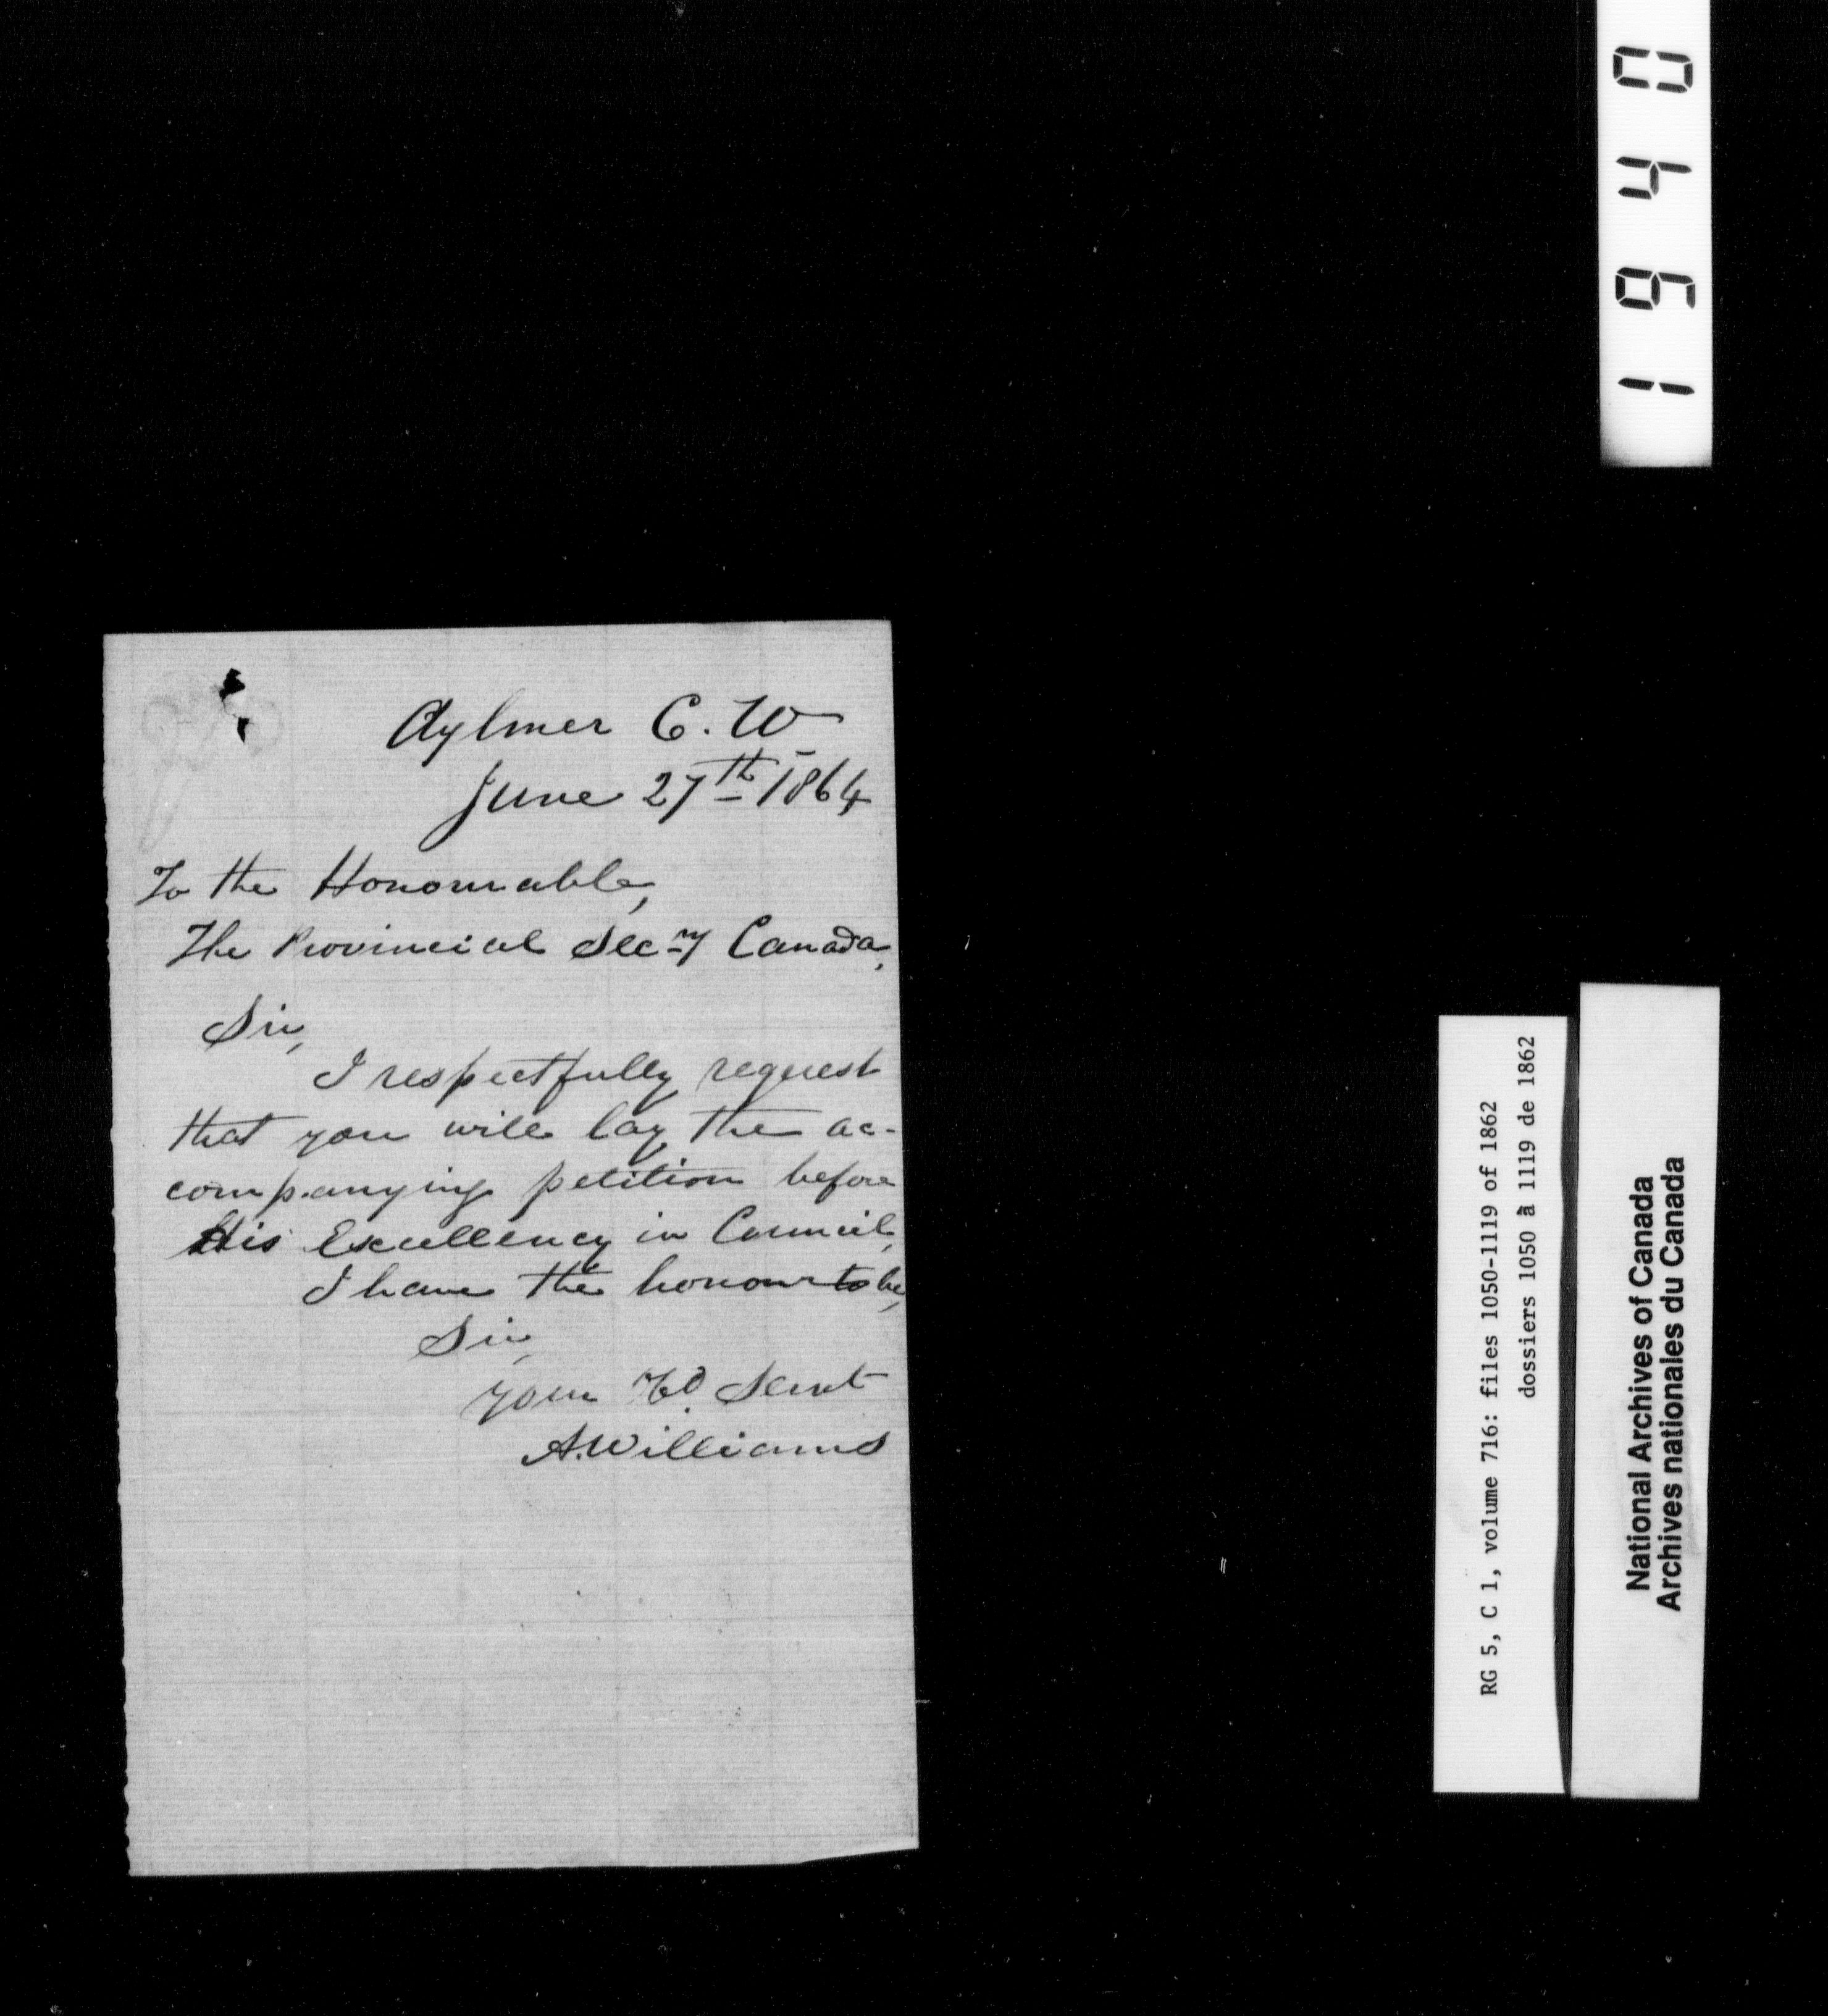 Aylmer C. W
June 27th 1864
To the Honourable,
The Provincial Secry Canada,
Sir,
I respectfully request
that you will lay the ac-
companying petition before
His Excellency in Council,
I have the honour to be,
Sir,
your Servt
A. Williams
1940
RG 5, C 1, volume 716: files 1050-1119 of 1862
dossiers 1050 à 1119 de 1862
National Archives of Canada
Archives nationales du Canada